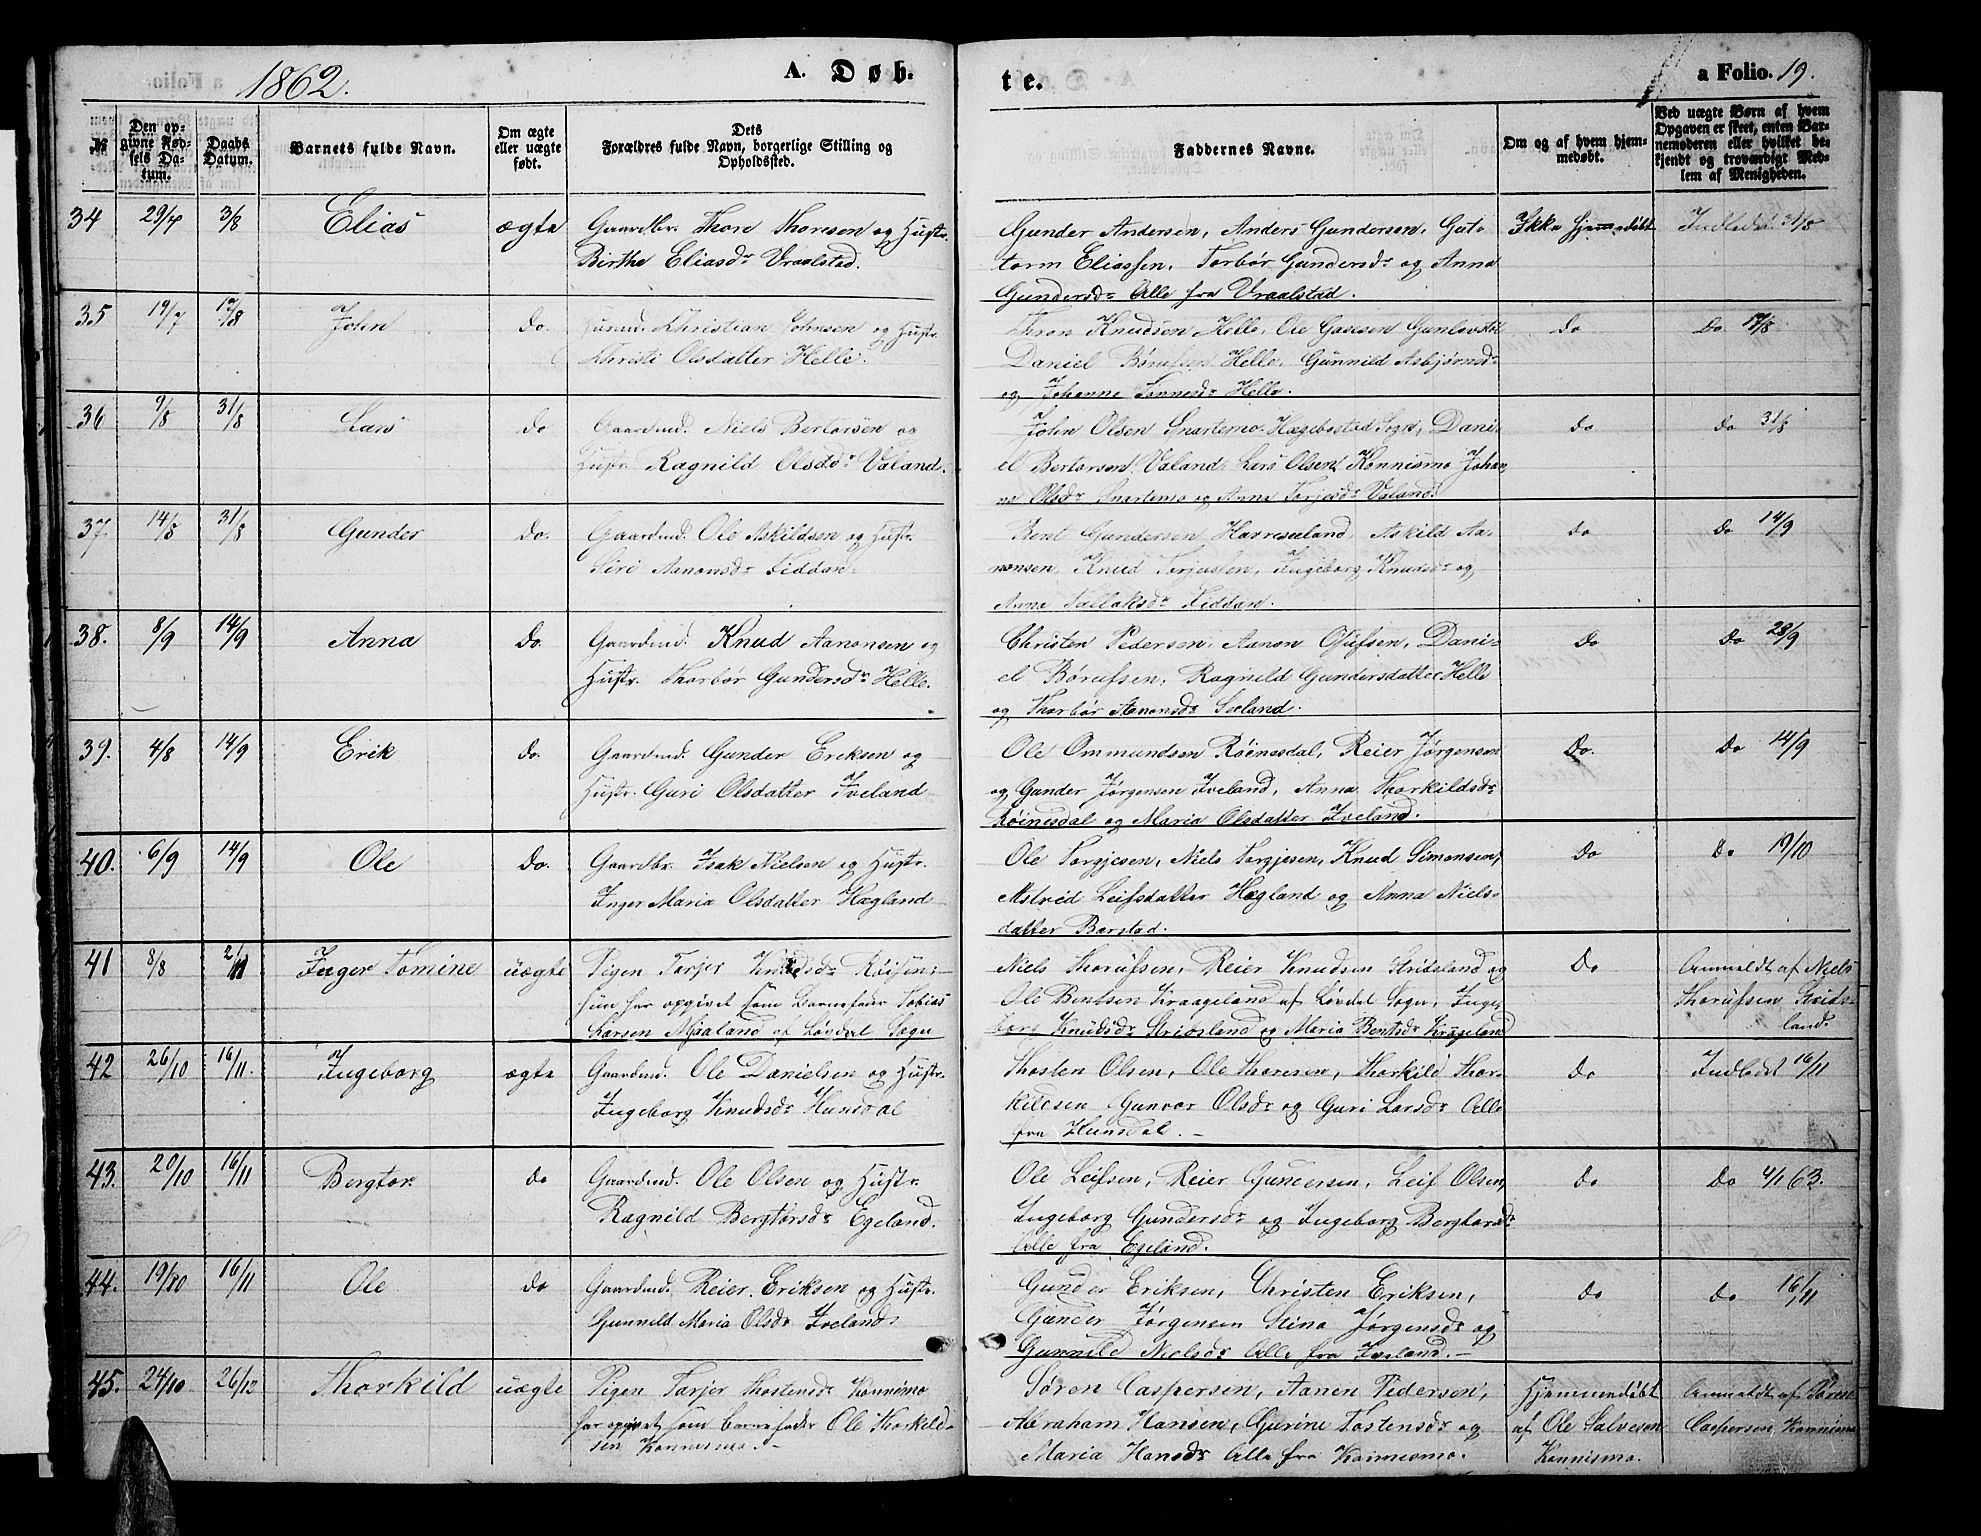 1862.
A. Døb-
te.
a Folio. 19.
№
Den op-
givne Fød-
sels Da-
tum.
Daabs
Datum.
Barnets fulde Navn.
Om ægte
eller uægte
født.
Dets
Forældres fulde Navn, borgerlige Stilling og
Opholdssted.
Faddernes Navne.
Om og af hvem hjem-
medøbt.
Ved uægte Børn af hvem
Opgaven er skeet, enten Bar-
nemoderen eller hvilket be-
kjendt og troværdigt Med-
lem af Menigheden.
34 29/7 3/8 Elias ægte
Gaardbr. Thore Thoresen og Hustr.
Birthe Eliasdr Vraalstad.
Gunder Andersen, Anders Gundersen, Gut-
torm Eliassen, Torbør Gundersdr og Anna
Gundersdr Alle fra Vraalstad.
Ikke hjemmedøbt
Indledt 31/8
35 19/7 17/8 John do.
Husmd. Christian Johnsen og Hustr.
Christi Olsdatter Helle.
Tron Knudsen Helle, Ole
Daniel Børufsen Helle, Gunnild Asbjørnsdr
og Johanne Tønnesdr Helle.
do
do 17/8
36 9/8 31/8 Lars do
Gaardmd. Niels Bertorsen og
Hustr. Ragnild Olsdr Valand.
John Olsen Snartemo Hægebostad Sogn, Dani-
el Bertorsen Valand, Lars Olsen Konnismo Johan-
na Olsdr Snartemo og Anna Torjesdr Valand.
do
do 31/8
37. 14/8 31/8 Gunder do.
Gaardmd. Ole Askildsen og Hustr.
Siri Aanonsdr Fiddan
Bent Gundersen Havreseland, Askild Aa-
nonsen, Knud Torjussen, Ingeborg Knudsdr og
Anna Tallaksdr Fiddan.
do
do 14/9
38. 8/9 14/9 Anna do.
Gaardmd. Knud Aanonsen og
Hustr. Thorbør Gundersdr Helle.
Christen Pedersen, Aanon Olufsen, Dani-
el Børufsen, Ragnild Gundersdatter Helle
og Thorbør Aanonsdr Søeland.
do
do 28/9
39. 4/8 14/9 Erik do.
Gaardmd. Gunder Eriksen og
Hustr. Guri Olsdatter Iveland
Ole Ommundsen Røinesdal, Reier Jørgensen
og Gunder Jørgensen Iveland, Anna Thorkildsdr
Røinesdal og Maria Olsdatter Iveland.
do.
do 14/9
40. 6/9 14/9 Ole do.
Gaardbr. Isak Nielsen og Hustr.
Inger Maria Olsdatter Hægland
Ole Torgjesen, Niels Torgjesen, Knud Simonsen,
Astred Leifsdatter Hægland og Anna Niels-
datter Barstad.
do
do 19/10
41 8/8 2/11 Inger Tomine uægte
Pigen Torjer Knudsdr Røisen;
hun har opgivet som Barnefader Tobias
Larsen Mjaaland af Løvdal Sogn
Niels Thorufsen, Reier Knudsen Stridsland og
Ole Bentsen Kraageland af Løvdal Sogn, Inge-
borg Knudsdr Stridsland og Maria Bentsdr Krageland
do
Anmeldt af Niels
Thorufsen Strids-
land.
42 26/10 16/11. Ingeborg ægte
Gaardmd. Ole Danielsen og Hustr.
Ingeborg Knudsdr Hunsdal
Thosten Olsen, Ole Thoresen, Thorkild Thor-
kildsen Gunvor Olsdr og Guri Larsdr Alle
fra Hunsdal.
do
Indledt 16/11
43. 20/10 16/11 Bergtor. do
Gaardmd. Ole Olsen og Hustr.
Ragnild Bergtorsdr Egeland.
Ole Leifsen, Reier Gundersen, Leif Olsen,
Ingeborg Gundersdr og Ingeborg Bergtorsdr
Alle fra Egeland.
do
do 4/1 63.
44. 19/10 16/11 Ole do
Gaardmd. Reier Eriksen og Hustr.
Gunnild Maria Olsdr Iveland.
Gunder Eriksen, Christen Eriksen,
Gunder Jørgensen Stina Jørgensdr og
Gunnild Nielsdr Alle fra Iveland.
do
do 16/11
45. 24/10 26/12 Thorkild uægte
Pigen Torjer Thostensdr Konnismo
har opgivet som Barnefader Ole Thorkild-
sen Konnismo.
Søren Caspersen, Aanen Pedersen,
Abraham Hansen, Gurine Tostensdr og
Maria Hansdr Alle fra Konnismo.
Hjemmedøbt
af Ole Salvesen
Konnismo.
Anmeldt af Søren
Caspersen Konnismo